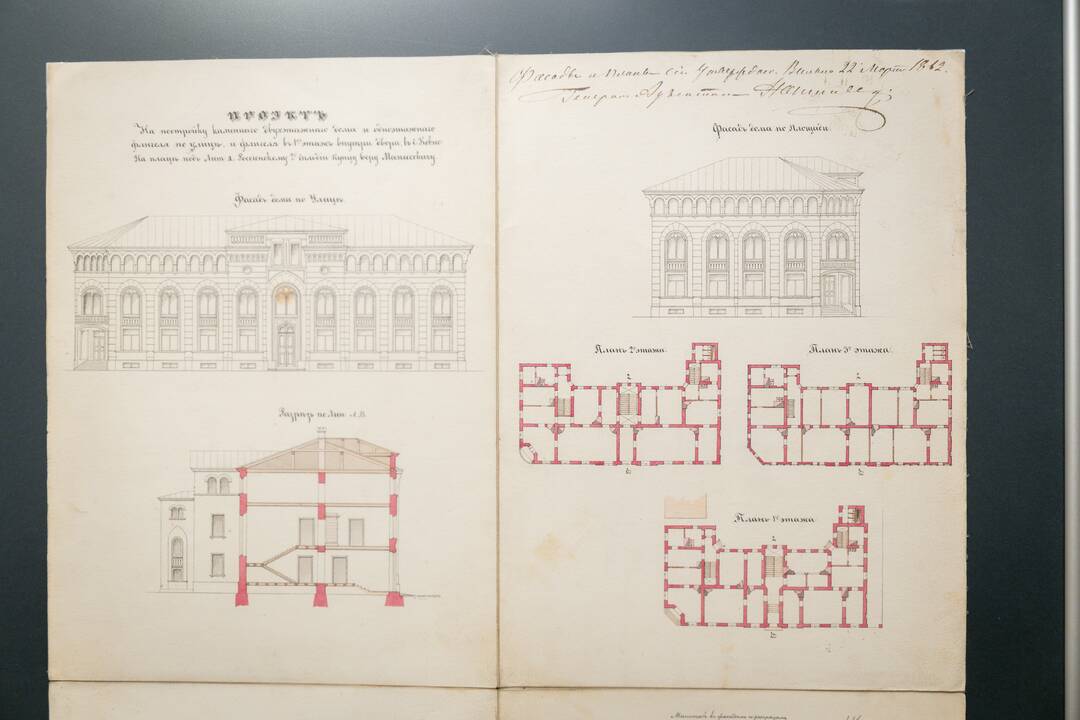 ПРОЭКТЪ
На постройку каменнаго двухэтажнаго дома и одноэтажнаго
флигеля по улицѣ, и флигеля въ 1нъ этажъ внутри двора, въ г. Ковно
На плацѣ подъ Лит А. Россіенскому 2й гильдіи Купцу
Фасадъ дома по Улицѣ.
Разрѣзъ по Лин. А.В.
Фасадъ и планъ Вильно 22 Марта 1862.
Генерал
Фасадъ дома по Площади.
Планъ 2го этажа.
Планъ 3го этажа.
Планъ 1го этажа